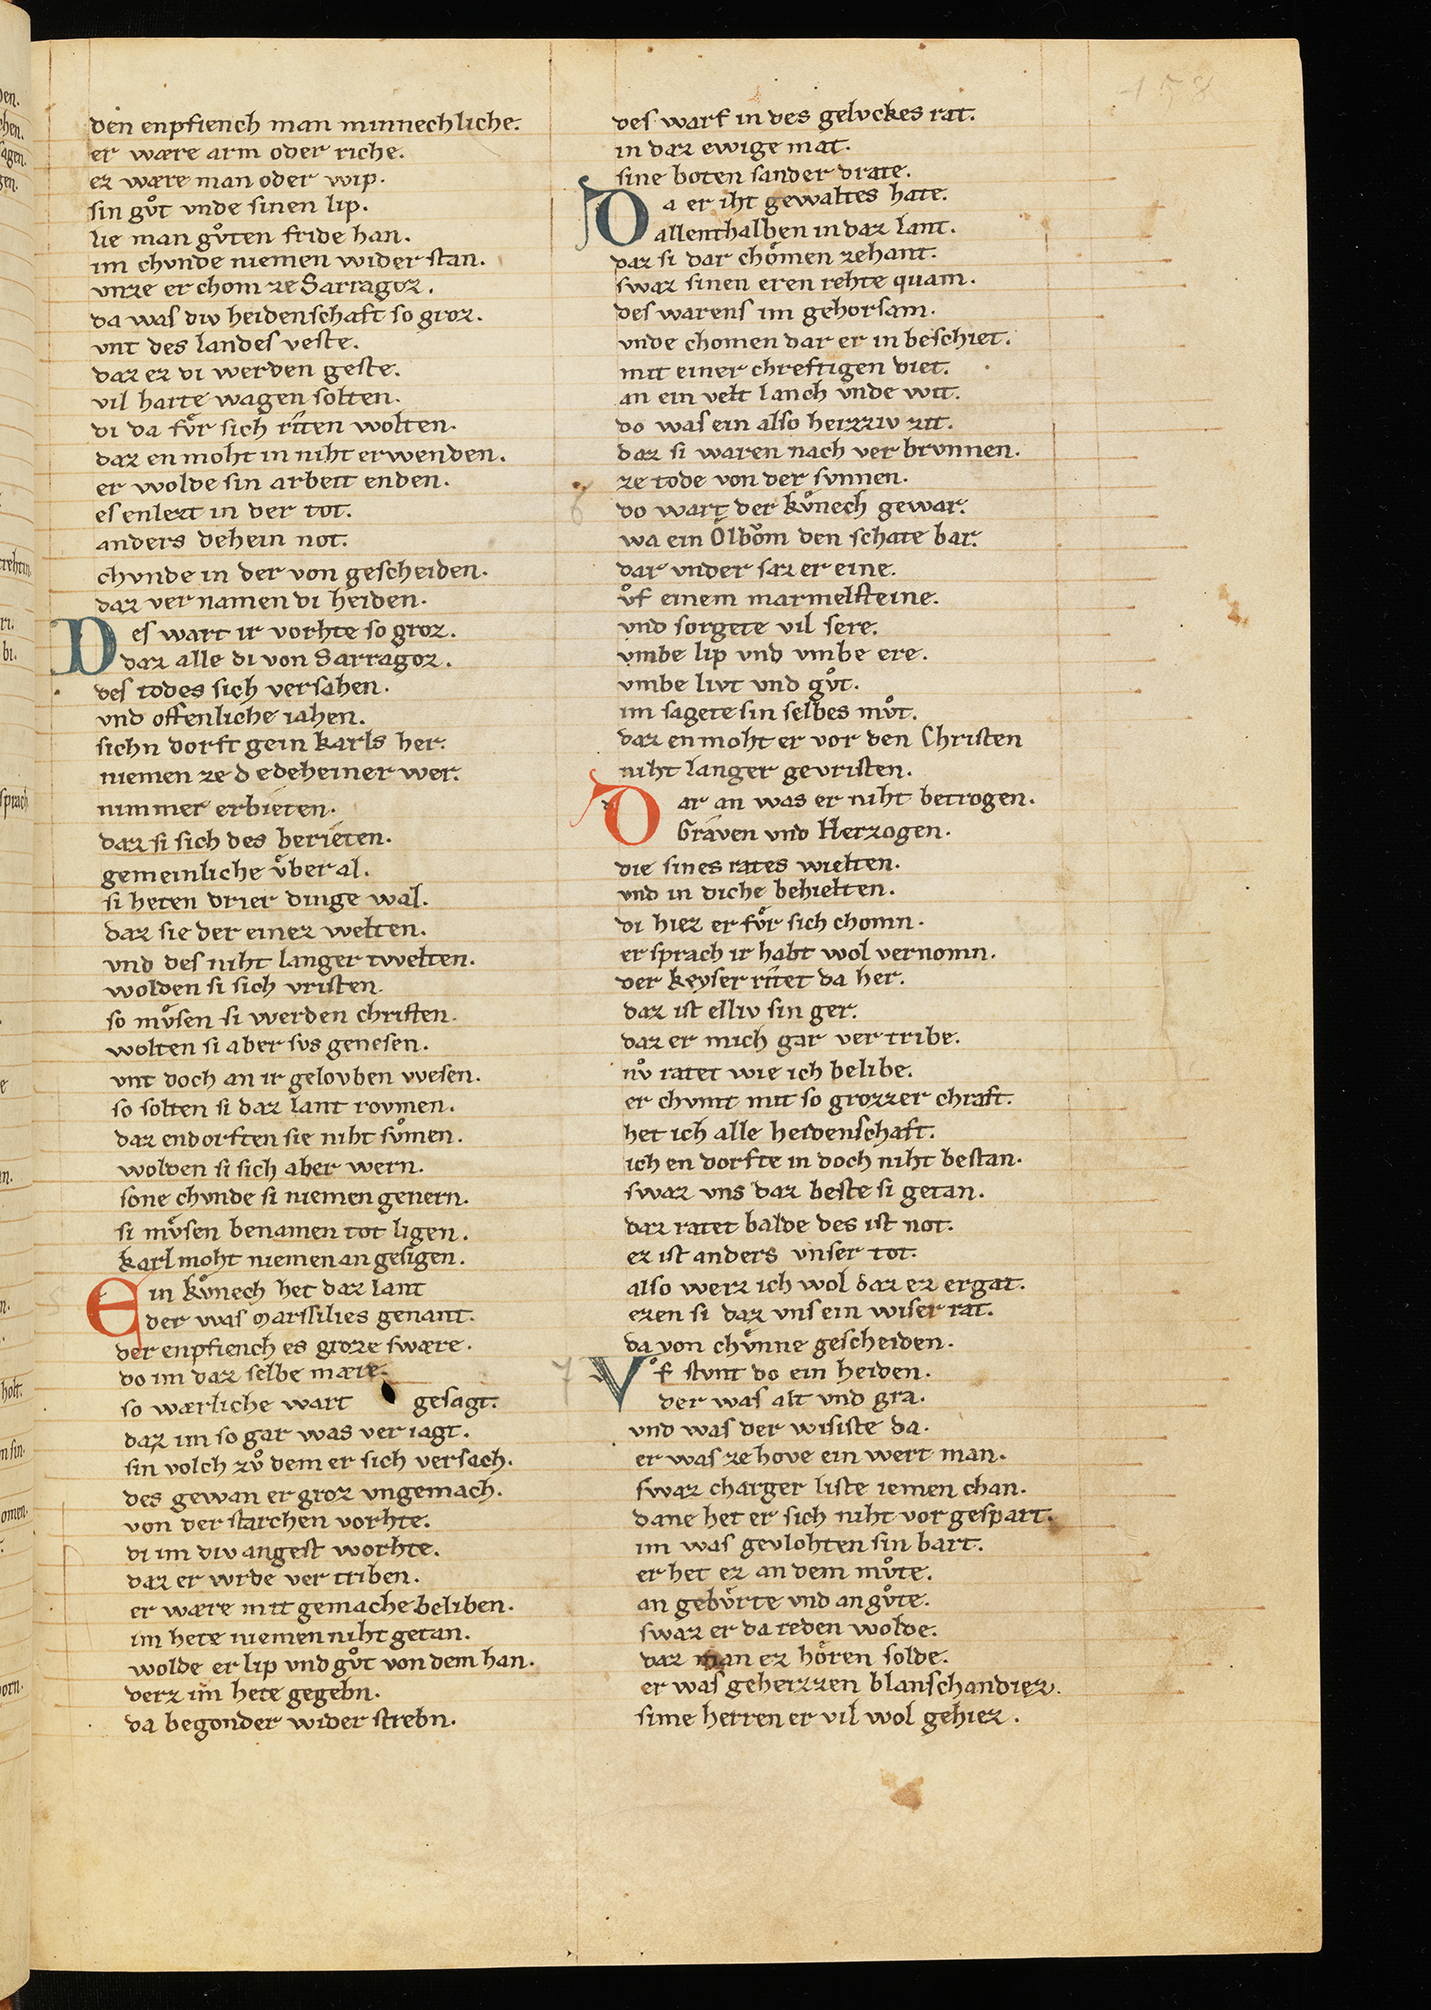 den enpfiench man minnechliche.
er wære arm oder riche.
ez wære man oder wip.
sin gůt vnde sinen lip.
lie man gůten fride han.
im chvnde niemen wider stan.
vnze er chom ze Sarragoz.
da was div heidenschaft so groz.
vnt des landes veste.
daz ez di werden geste.
vil harte wagen solten.
di da fv̊r sich riten wolten.
daz en moht in niht erwenden.
er wolde sin arbeit enden.
es enlezt in der tot.
anders dehein not.
chvnde in der von gescheiden.
daz ver namen di heiden.
Des wart ir vorhte so groz.
daz alle di von Sarragoz.
des todes sich versahen.
vnd offenliche iahen.
sichn dorft gein karls her.
niemen ze dedeheiner wer.
nimmer erbieten.
daz si sich des berieten.
gemeinliche v̊ber al.
si heten drier dinge wal.
daz sie der einez welten.
vnd des niht langer twelten.
wolden si sich vristen.
so mv̊sen si werden christen.
wolten si aber svs genesen.
vnt doch an ir gelovben wesen.
so solten si daz lant rovmen.
daz endorften sie niht sv̊men.
wolden si sich aber wern.
sone chvnde si niemen genern.
si mv̊sen benamen tot ligen.
karl moht niemen an gesigen.
Ein kv̊nech het daz lant
der was Marssilies genant.
der enpfiench es groze swære.
do im daz selbe mære.
so wærliche wart gesagt.
daz im so gar was ver iagt.
sin volch zv̊ dem er sich versach.
des gewan er groz vngemach.
von der starchen vorhte.
di im div angest worhte.
daz er wrde ver triben.
er wære mit gemache beliben.
im hete niemen niht getan.
wolde er lip vnd gůt von dem han.
derz im hete gegebn.
da begonder wider strebn.
des warf in des gelvckes rat.
in daz ewige mat.
sine boten sander drate.
Da er iht gewaltes hate.
allenthalben in daz lant.
daz si dar chômen zehant.
swaz sinen eren rehte quam.
des warens im gehorsam.
vnde chomen dar er in beschiet.
mit einer chreftigen diet.
an ein velt lanch vnde wit.
do was ein also heizziv zit.
daz si waren nach ver brvnnen.
ze tode von der svnnen.
do wart der kv̊nech gewar.
wa ein Ôlbǒm den schate bar.
dar vnder saz er eine.
v̊f einem marmelsteine.
vnd sorgete vil sere.
vmbe lip vnd vmbe ere.
vmbe livt vnd gv̊t.
im sagete sin selbes mv̊t.
daz en moht er vor den Christen
niht langer gevristen.
Dar an was er niht betrogen.
Graven vnd Herzogen.
die sines rates wielten.
vnd in diche behielten.
di hiez er fv̊r sich chomn.
er sprach ir habt wol vernomn.
der keyser ritet da her.
daz ist elliv sin ger.
daz er mich gar ver tribe.
nv̊ ratet wie ich belibe.
er chvmt mit so grozzer chraft.
het ich alle heidenschaft.
ich en dorfte in doch niht bestan.
swaz vns daz beste si getan.
daz ratet balde des ist not.
ez ist anders vnser tot.
also weiz ich wol daz ez ergat.
ezen si daz vns ein wiser rat.
da von chv̊nne gescheiden.
V̊f stvnt do ein heiden.
der was alt vnd gra.
vnd was der wisiste da.
er was ze hove ein wert man.
swaz charger liste iemen chan.
dane het er sich niht vor gespart.
im was gevlohten sin bart.
er het ez an dem mv̊te.
an gebv̊rte vnd an gv̊te.
swaz er da reden wolde.
daz man ez hôren solde.
er was geheizzen blanschandiez.
sime herren er vil wol gehiez.